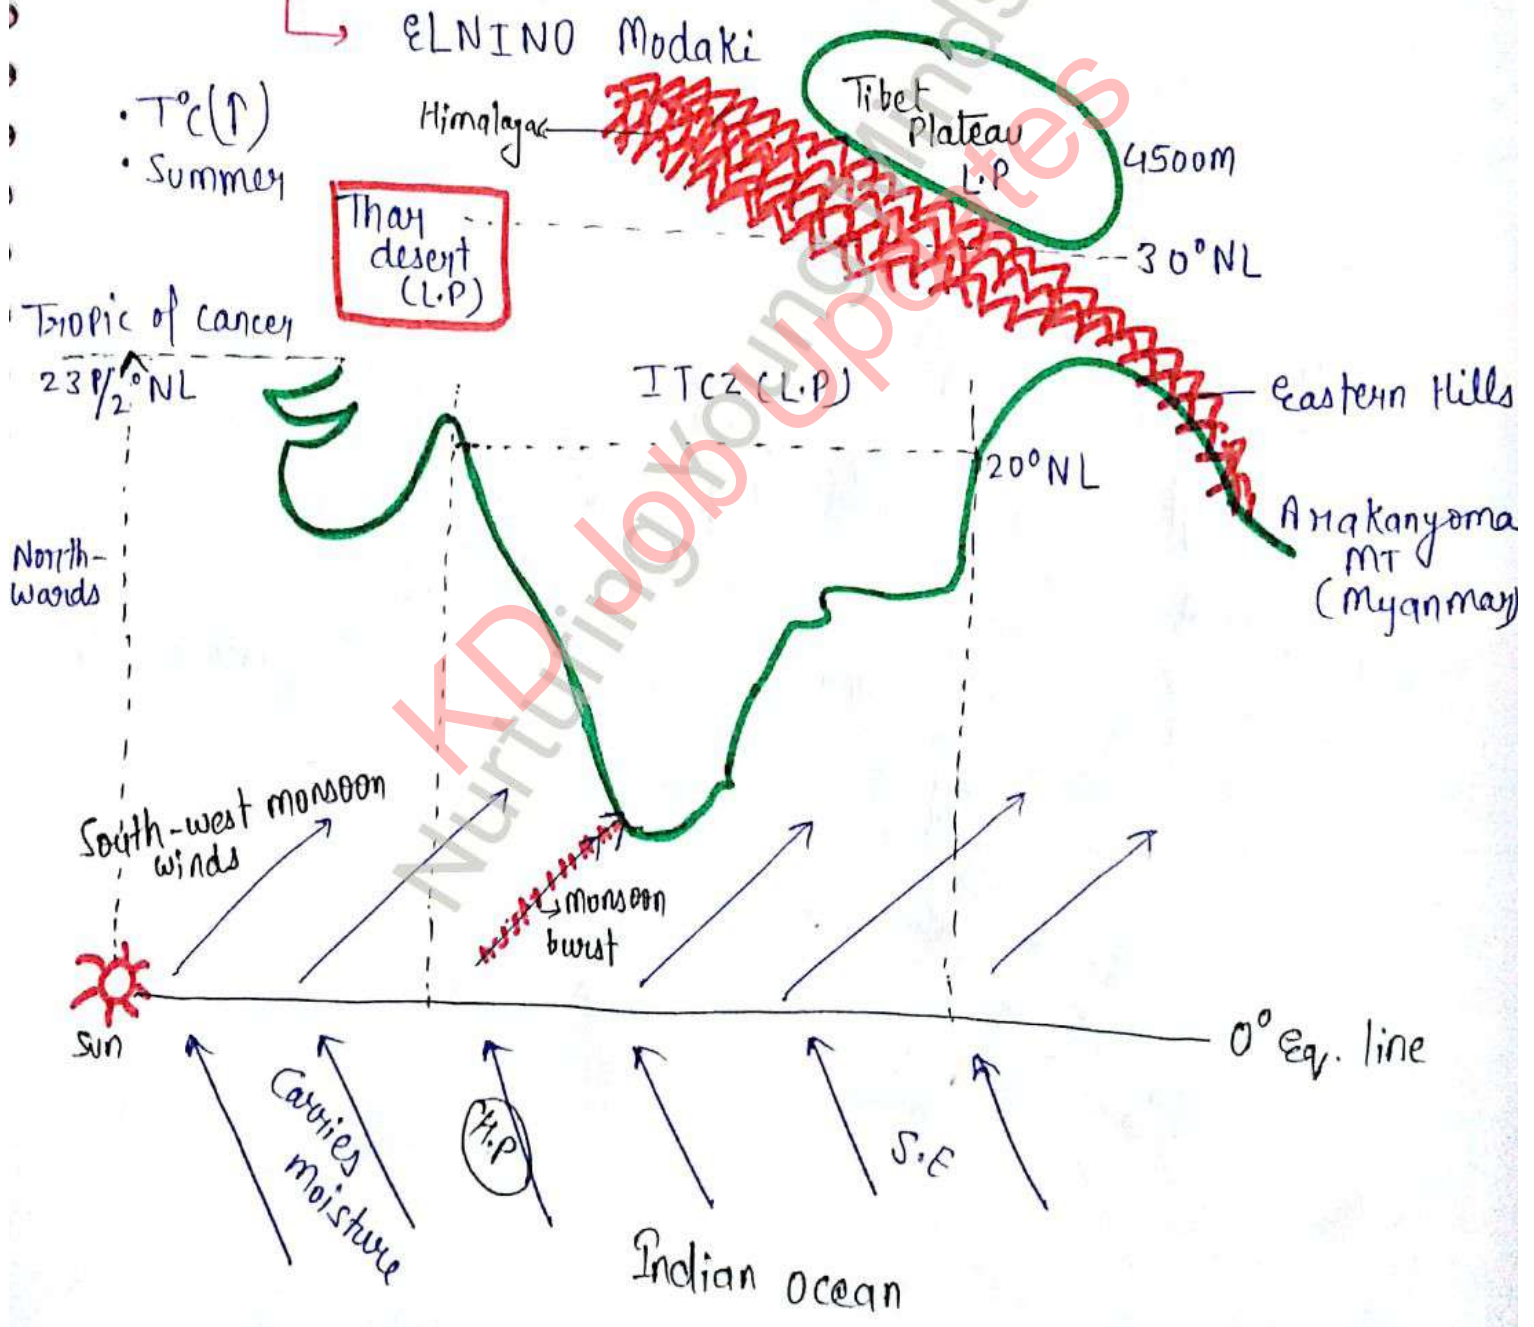 ELNINO Modaki
• T°C(↑)
• Summer
Himalayas
Tibet
Plateau
L.P
4500m
Thar
desert
(L.P)
30°NL
Tropic of cancer
23 1/2°NL
ITCZ (L.P)
Eastern Hills
20°NL
Arakanyoma
MT
(Myanmar)
North-
wards
South-west monsoon
winds
monsoon
burst
Sun
0° Eq. line
Carries
moisture
H.P
S.E
Indian ocean
KD Job Updates
Nurturing Young Minds